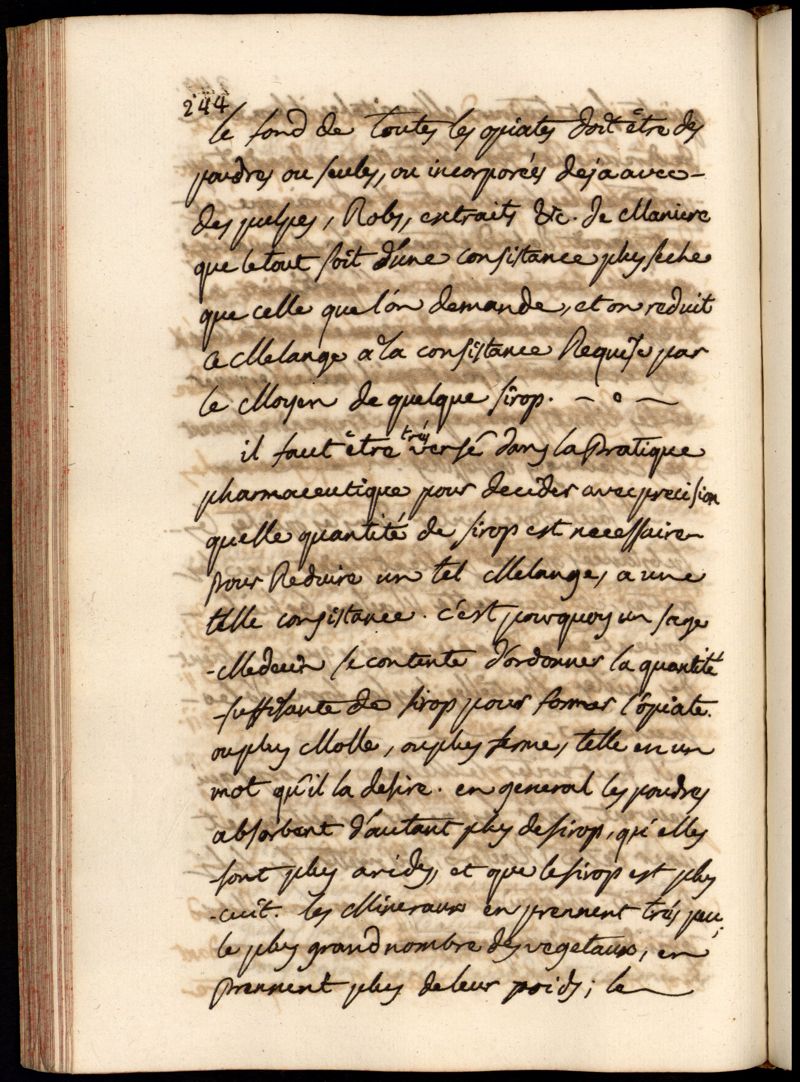 244
le fond de toutes les opiates doit être des
poudres ou seules, ou incorporés deja avec
des pulpes, Robs, extraits &c. de Maniere
que le tout soit d'une consistance plus seche
que celle que l'on demande, et on reduit
ce Melange a la consistance Requise par
le Moyen de quelque sirop. — o —
il faut être trés versé dans la pratique
pharmaceutique pour decider avec precision
quelle quantité de sirop est necessaire
pour Reduire un tel Melange, a une
telle consistance. c'est pourquoy un sage
Medecin se contente d'ordonner la quantité
suffisante de sirop pour former l'opiate.
ou plus Molle, ou plus ferme, telle en un
mot qu'il la desire. en general les poudres
absorbent d'autant plus de sirop, qu'elles
sont plus arides, et que le sirop est plus
cuit. les Mineraux en prennent trés peu;
le plus grand nombre des vegetaux, en
prennent plus de leur poids; le